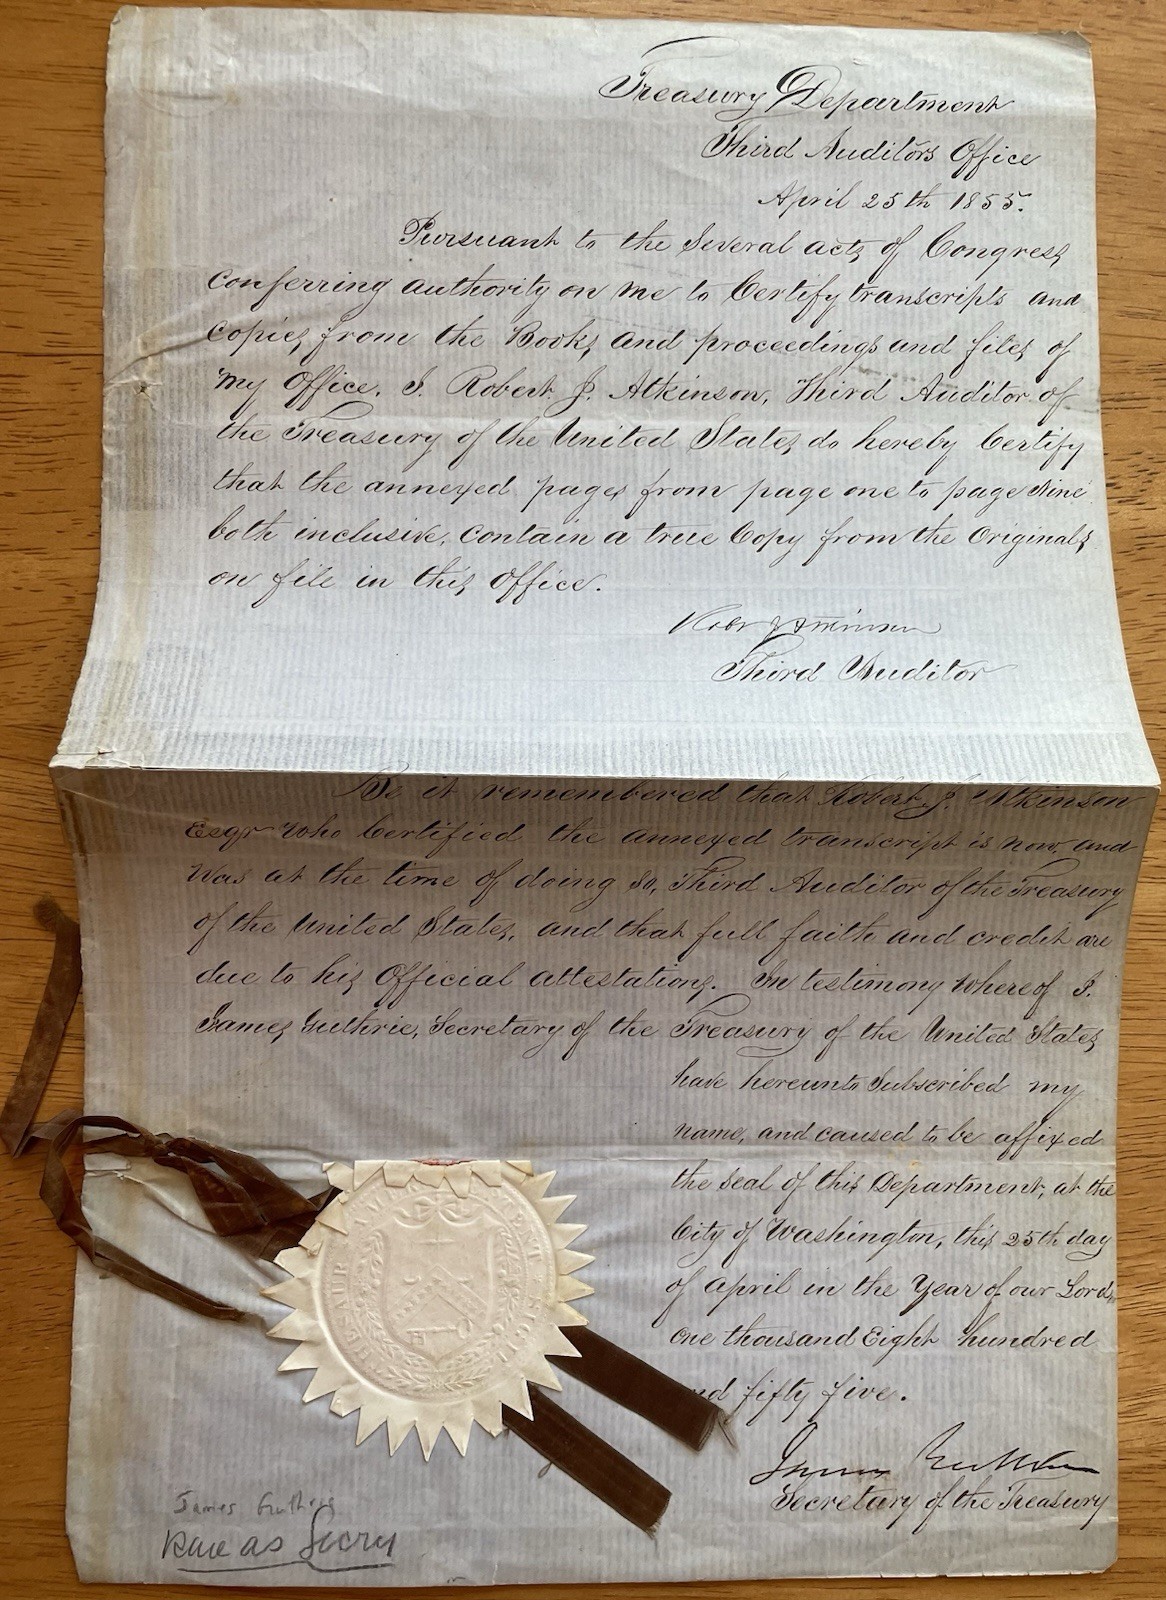 Treasury Department
Third Auditors Office
April 25th 1855.
Pursuant to the Several acts of Congress
conferring authority on me to Certify transcripts and
Copies from the Books and proceedings and files of
my Office. I. Robert. J. Atkinson, Third Auditor of
the Treasury of the United States do hereby Certify
that the annexed pages from page one to page Nine
both inclusive, contain a true Copy from the Originals
on file in this Office.
Robt J Atkinson
Third Auditor
Be it remembered that Robert. J. Atkinson
Esqr who Certified the annexed transcript is now, and
Was at the time of doing so, Third Auditor of the Treasury
of the United States, and that full faith and credit are
due to his Official attestations. In testimony whereof I.
James Guthrie, Secretary of the Treasury of the United States
have hereunto Subscribed my
name, and caused to be affixed
the seal of this Department, at the
City of Washington, this 25th day
of April in the Year of our Lord,
One thousand Eight hundred
and fifty five.
James Guthrie
Secretary of the Treasury
James Guthrie
Rare as Secry